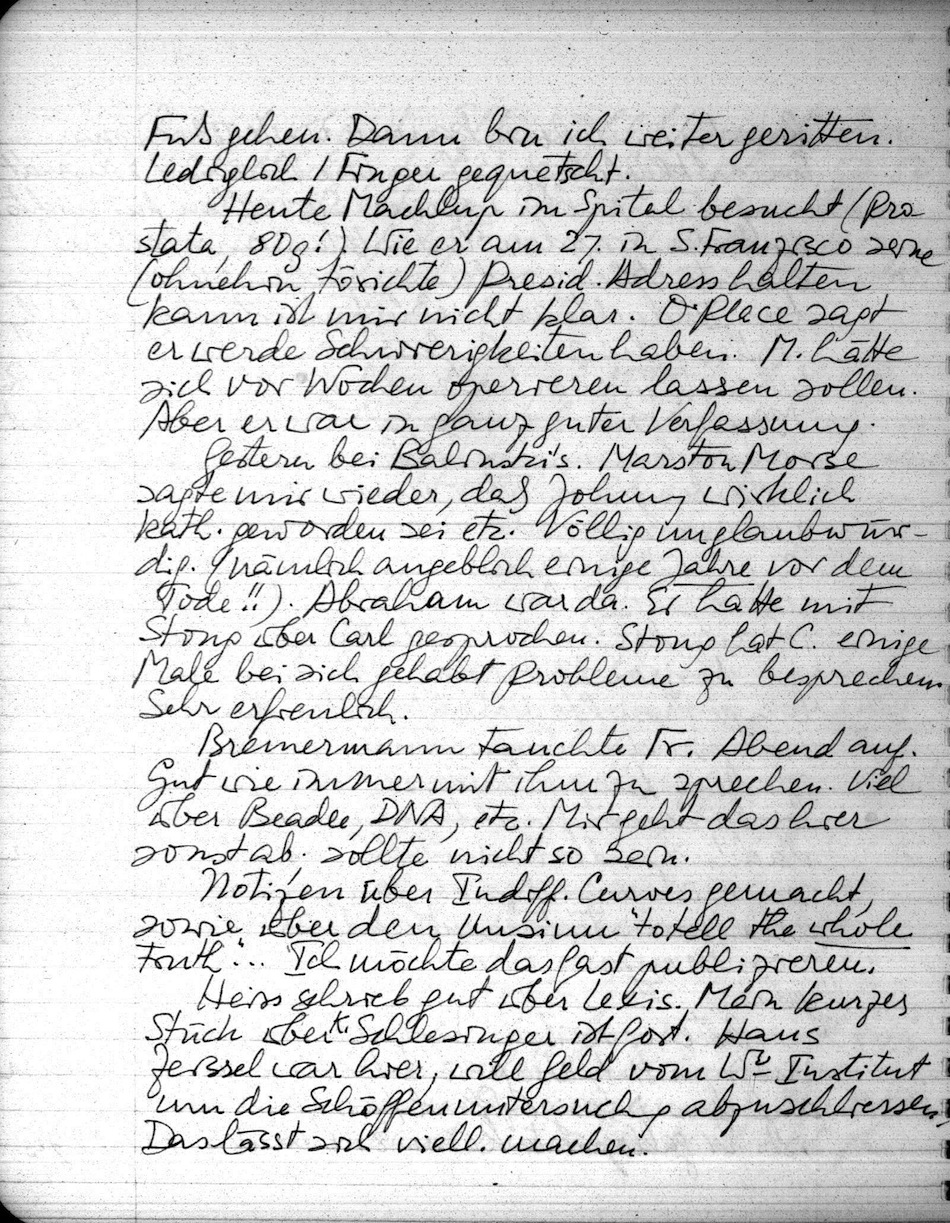 Fuß gehen. Dann bin ich weiter geritten.
Lediglich 1 Finger gequetscht.
Heute Machlup im Spital besucht (Pro
stata, 80g!) Wie er am 27. in S. Franzisco seine
(ohnehin törichte) Presid. Adress halten
kann ist mir nicht klar. O'Place sagt
er werde Schwierigkeiten haben. M. hätte
sich vor Wochen operieren lassen sollen.
Aber er war in ganz guter Verfassung.
Gestern bei Balinski's. Marston Morse
sagte mir wieder, daß Johnny wirklich
kath. geworden sei etc. Völlig unglaubwür-
dig. (nämlich angeblich einige Jahre vor dem
Tode!!). Abraham war da. Er hatte mit
Stong über Carl gesprochen. Stong hat C. einige
Male bei sich gehabt Probleme zu besprechen.
Sehr erfreulich.
Bremermann tauchte Fr. Abend auf.
Gut wie immer mit ihm zu sprechen. Viel
über Beadle, DNA, etc. Mir geht das hier
sonst ab. sollte nicht so sein.
Notizen über Indiff. Curves gemacht,
sowie über den Unsinn "to tell the whole
truth"... Ich möchte das fast publizieren.
Heiss schrieb gut über Lexis. Mein kurzes
Stück über K. Schlesinger ist fort. Hans
Zeissel war hier, will Geld vom Wr Institut
um die Schöffenuntersuchg abzuschliessen.
Das lässt sich viell. machen.